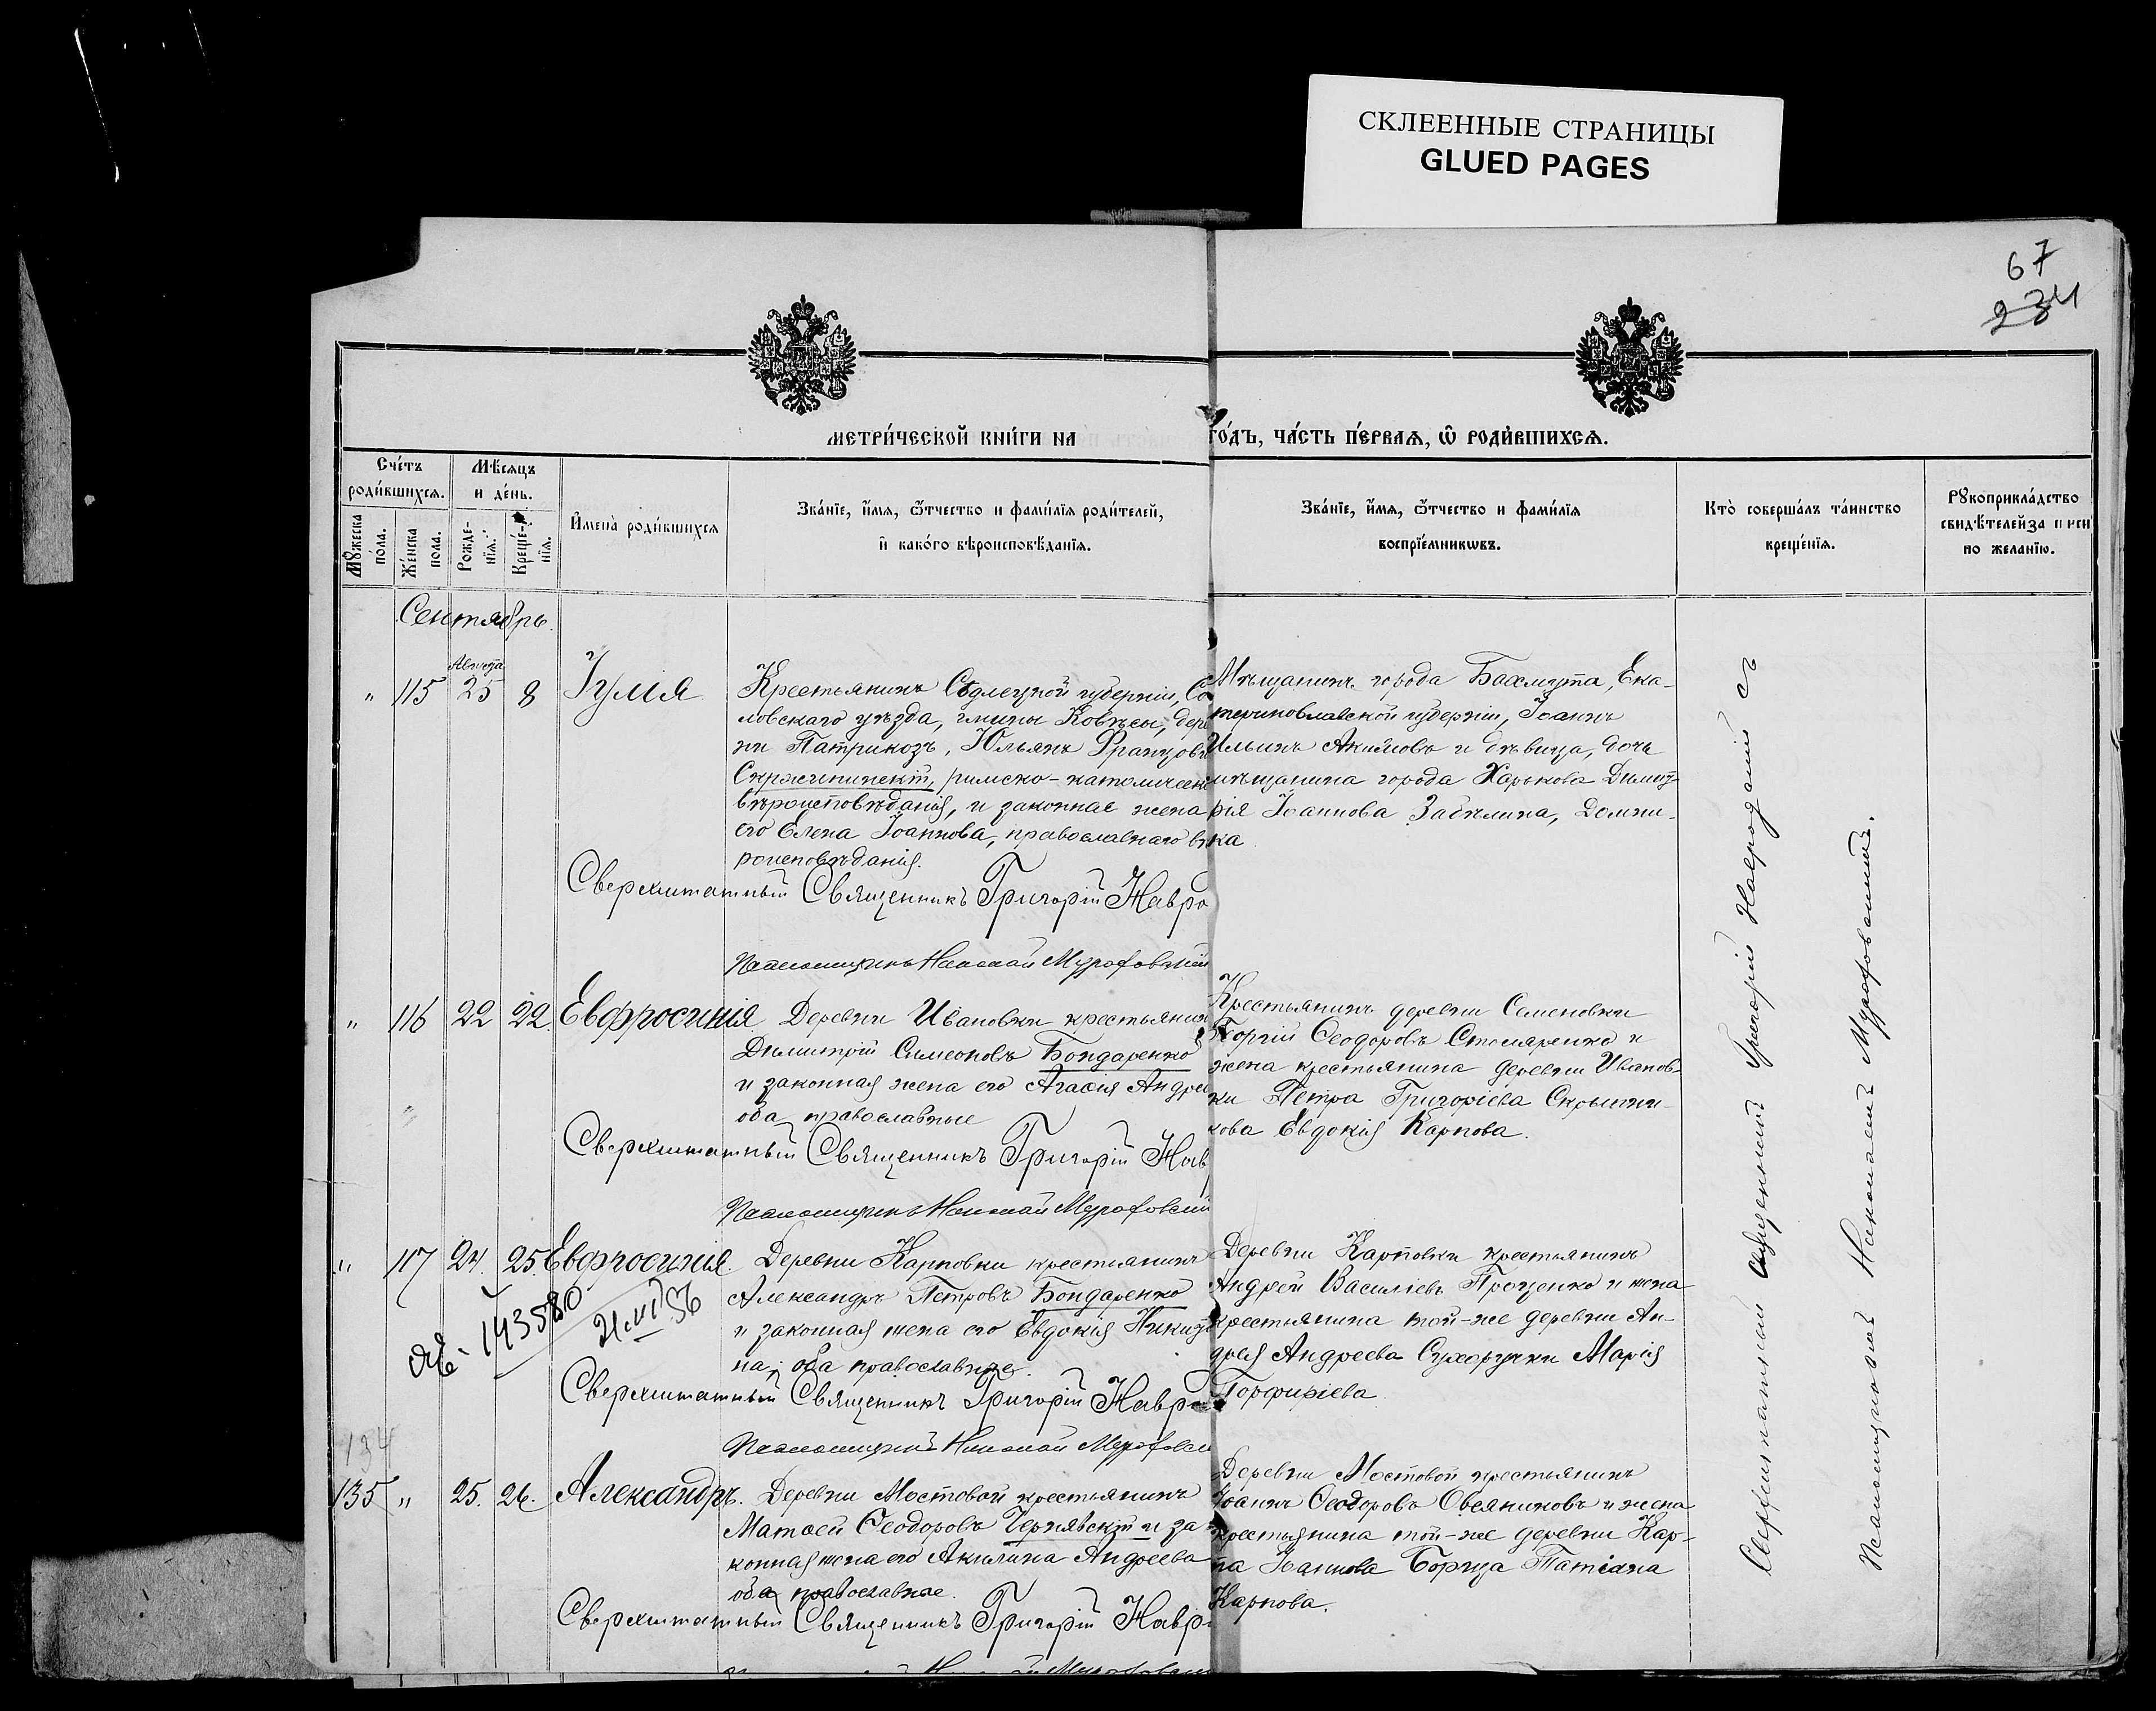 СКЛЕЕННЫЕ СТРАНИЦЫ
GLUED PAGES
67
234
МЕТРИ́ЧЕСКОЙ КНИ́ГИ НА
ГО́ДЪ, ЧА́СТЬ ПЕ́РВАѦ, Ѿ РОДИ́ВШИХСѦ.
Сче́тъ роди́вшихсѧ.
Мꙋжеска по́ла.
Же́нска пола.
Мѣ́сѧцъ и де́нь.
Рожде-нїѧ.
Креще́-нїѧ.
И҆мена̀ роди́вшихсѧ
Зва́нїе, и҆́мѧ, ѻ҆́тчество и фами́лїѧ роди́телей,
и҆ како́гѡ вѣроисповѣ́данїѧ.
Зва́нїе, и҆́мѧ, ѻ҆́тчество и фами́лїѧ
воспрїе́мникѡвъ.
Кто̀ соверша́лъ та́инство
креще́нїѧ.
Рꙋкоприкла́дство
свидѣ́телей
по жела́нїю.
Сентябрь.
Августа
" 115 25 8 Іулія
Крестьянинъ Сѣдлецкой губерніи, Со
ловскаго уѣзда, гмины Ковѣсы, дерев
ни Патрикозъ, Юльянъ Францовъ
Скржипинскій, римско-католическ
вѣроисповѣданія, и законная жена
его Елена Іоаннова, православнаго вѣ
роисповѣданія.
Сверхштатный Священникъ Григорій Навро
Псаломщикъ Николай Мурафовскій
Мѣщанинъ города Бахмута, Ека-
теринославской губерніи, Іоаннъ
Ильинъ Акимовъ и дѣвица, дочь
мѣщанина города Харькова Димит-
рія Іоаннова Забѣлина, Домни-
ка
" 116 22 22. Евфросинія
Деревни Ивановки крестьянин
Димитрій Симеоновъ Бондаренко
и законная жена его Агафія Андрее
оба православные
Сверхштатный Священникъ Григорій Нав
Псаломщикъ Николай Мурафовскій
Крестьянинъ деревни Семеновки
Георгій Ѳеодоровъ Столяренко и
жена крестьянина деревни Иванов-
ки Петра Григоріева Скрынни-
кова Евдокія Карпова.
" 117 24. 25. Евфросинія.
143580
21.VI 56
Деревни Карповки крестьянинъ
Александръ Петровъ Бондаренко
и законная жена его Евдокія Никит
на, оба православные.
Сверхштатный Священникъ Григорій Навро
Псаломщикъ Николай Мурафовски
Деревни Карповки крестьянинъ
Андрей Василіевъ Проценко и жена
крестьянина той-же деревни Ан-
дрея Андреева Сухоручки Марія
Порфиріева.
134
135 " 25. 26. Александръ.
Деревни Мостовой крестьянинъ
Матѳей Ѳеодоровъ Чернявскій и за
конная жена его Акилина Андреева
оба православные.
Сверхштатный Священникъ Григорій Навр
Деревни Мостовой крестьянинъ
Іоаннъ Ѳеодоровъ Овсянниковъ и жена
крестьянина той-же деревни Кар-
па Іоаннова Борща Татіана
Карпова.
Сверхштатный Священникъ Григорій Навродскій съ
Псаломщикомъ Николаемъ Мурафовскимъ.